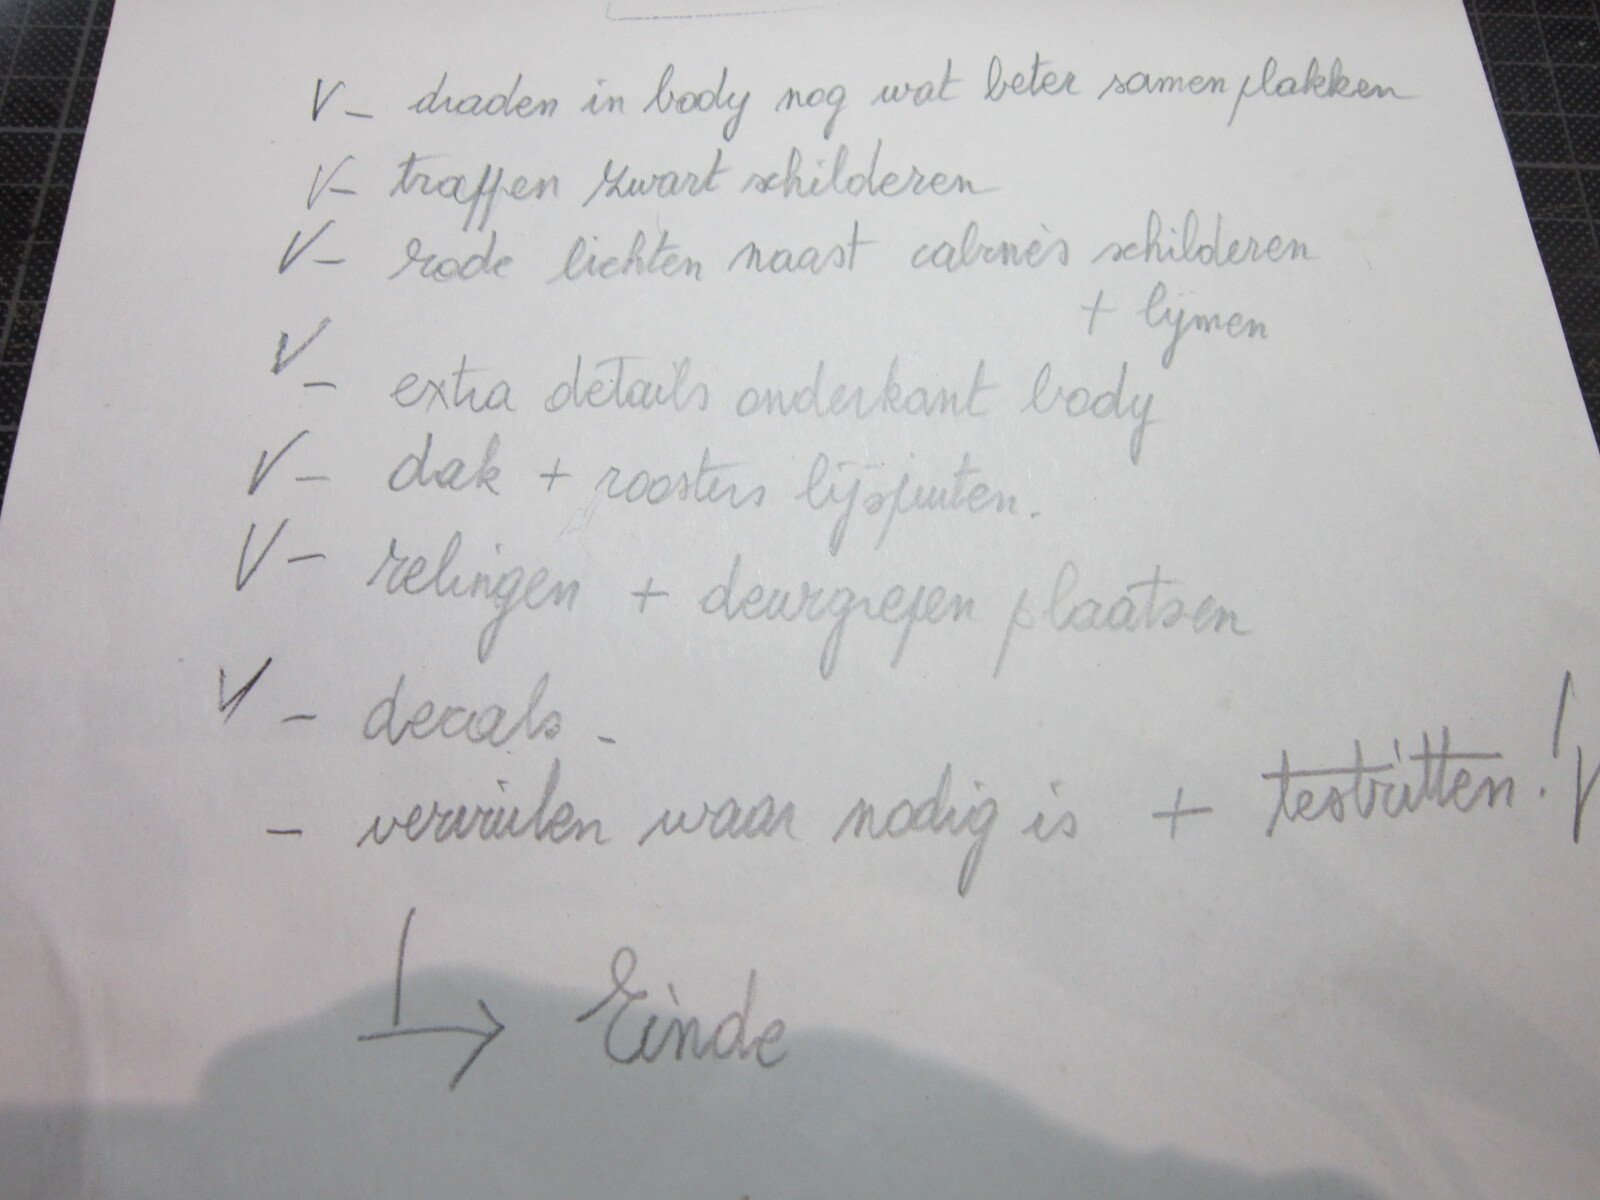 V - draden in body nog wat beter samenplakken
V - trappen zwart schilderen
V - rode lichten naast cabines schilderen
+ lijmen
V - extra details onderkant body
V - dak + roosters bijspuiten.
V - relingen + deurgrepen plaatsen
V - decals -
- vervuilen waar nodig is + testritten! V
→ Einde